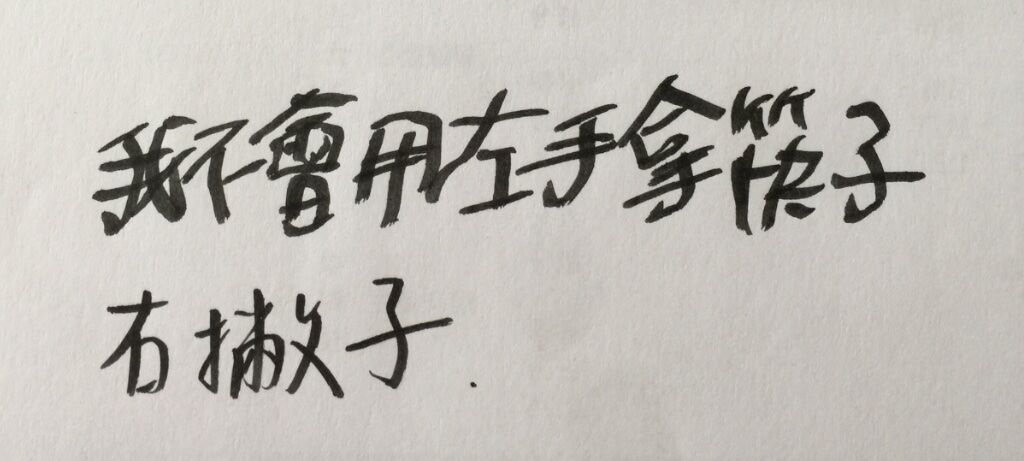 我不會用左手拿筷子
右撇子.